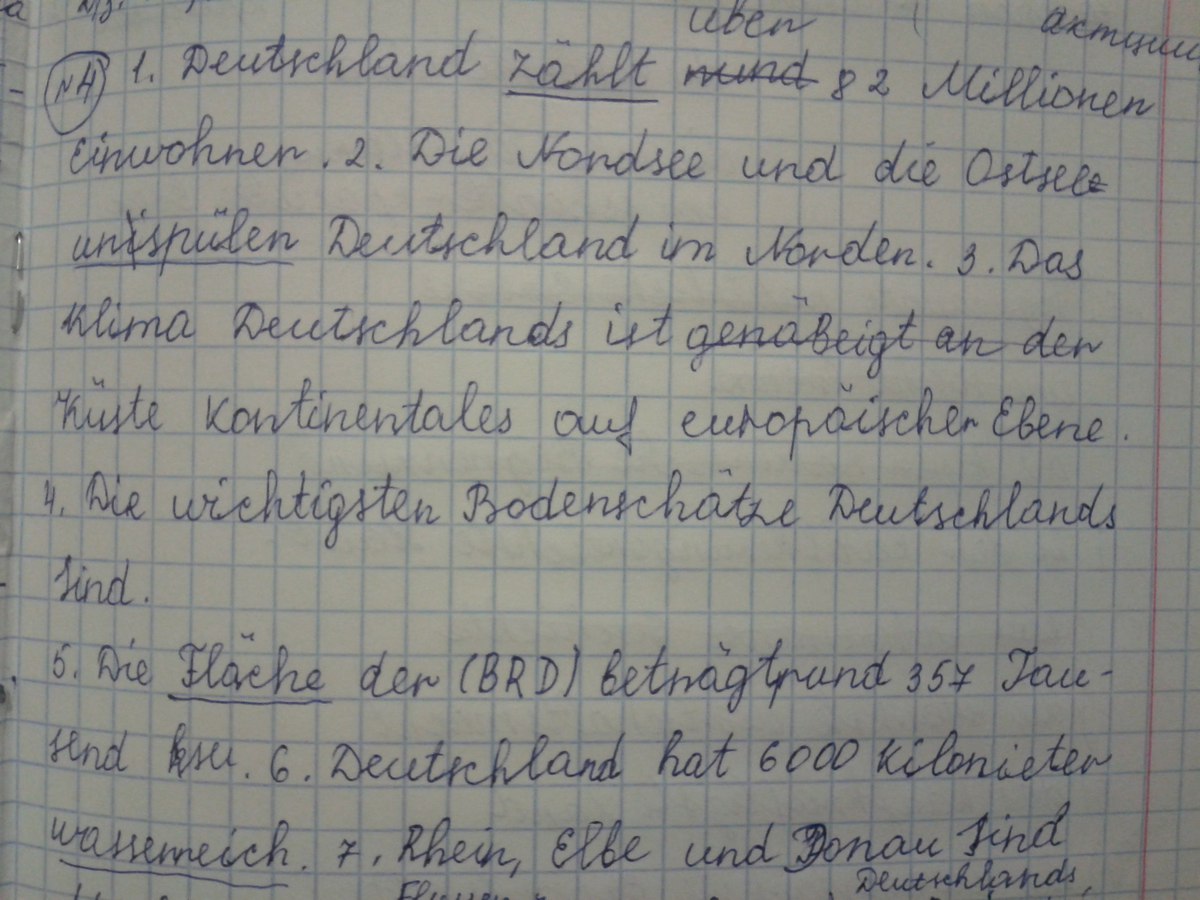 über
№4 1. Deutschland zählt rund 82 Millionen
Einwohner. 2. Die Nordsee und die Ostsee
umspülen Deutschland im Norden. 3. Das
Klima Deutschlands ist an der
Küste kontinentales auf europäischer Ebene.
4. Die wichtigsten Bodenschätze Deutschlands
sind.
5. Die Fläche der (BRD) beträgt rund 357 Tau-
send km. 6. Deutschland hat 6000 Kilometer
wasserreich. 7. Rhein, Elbe und Donau sind
Deutschlands,